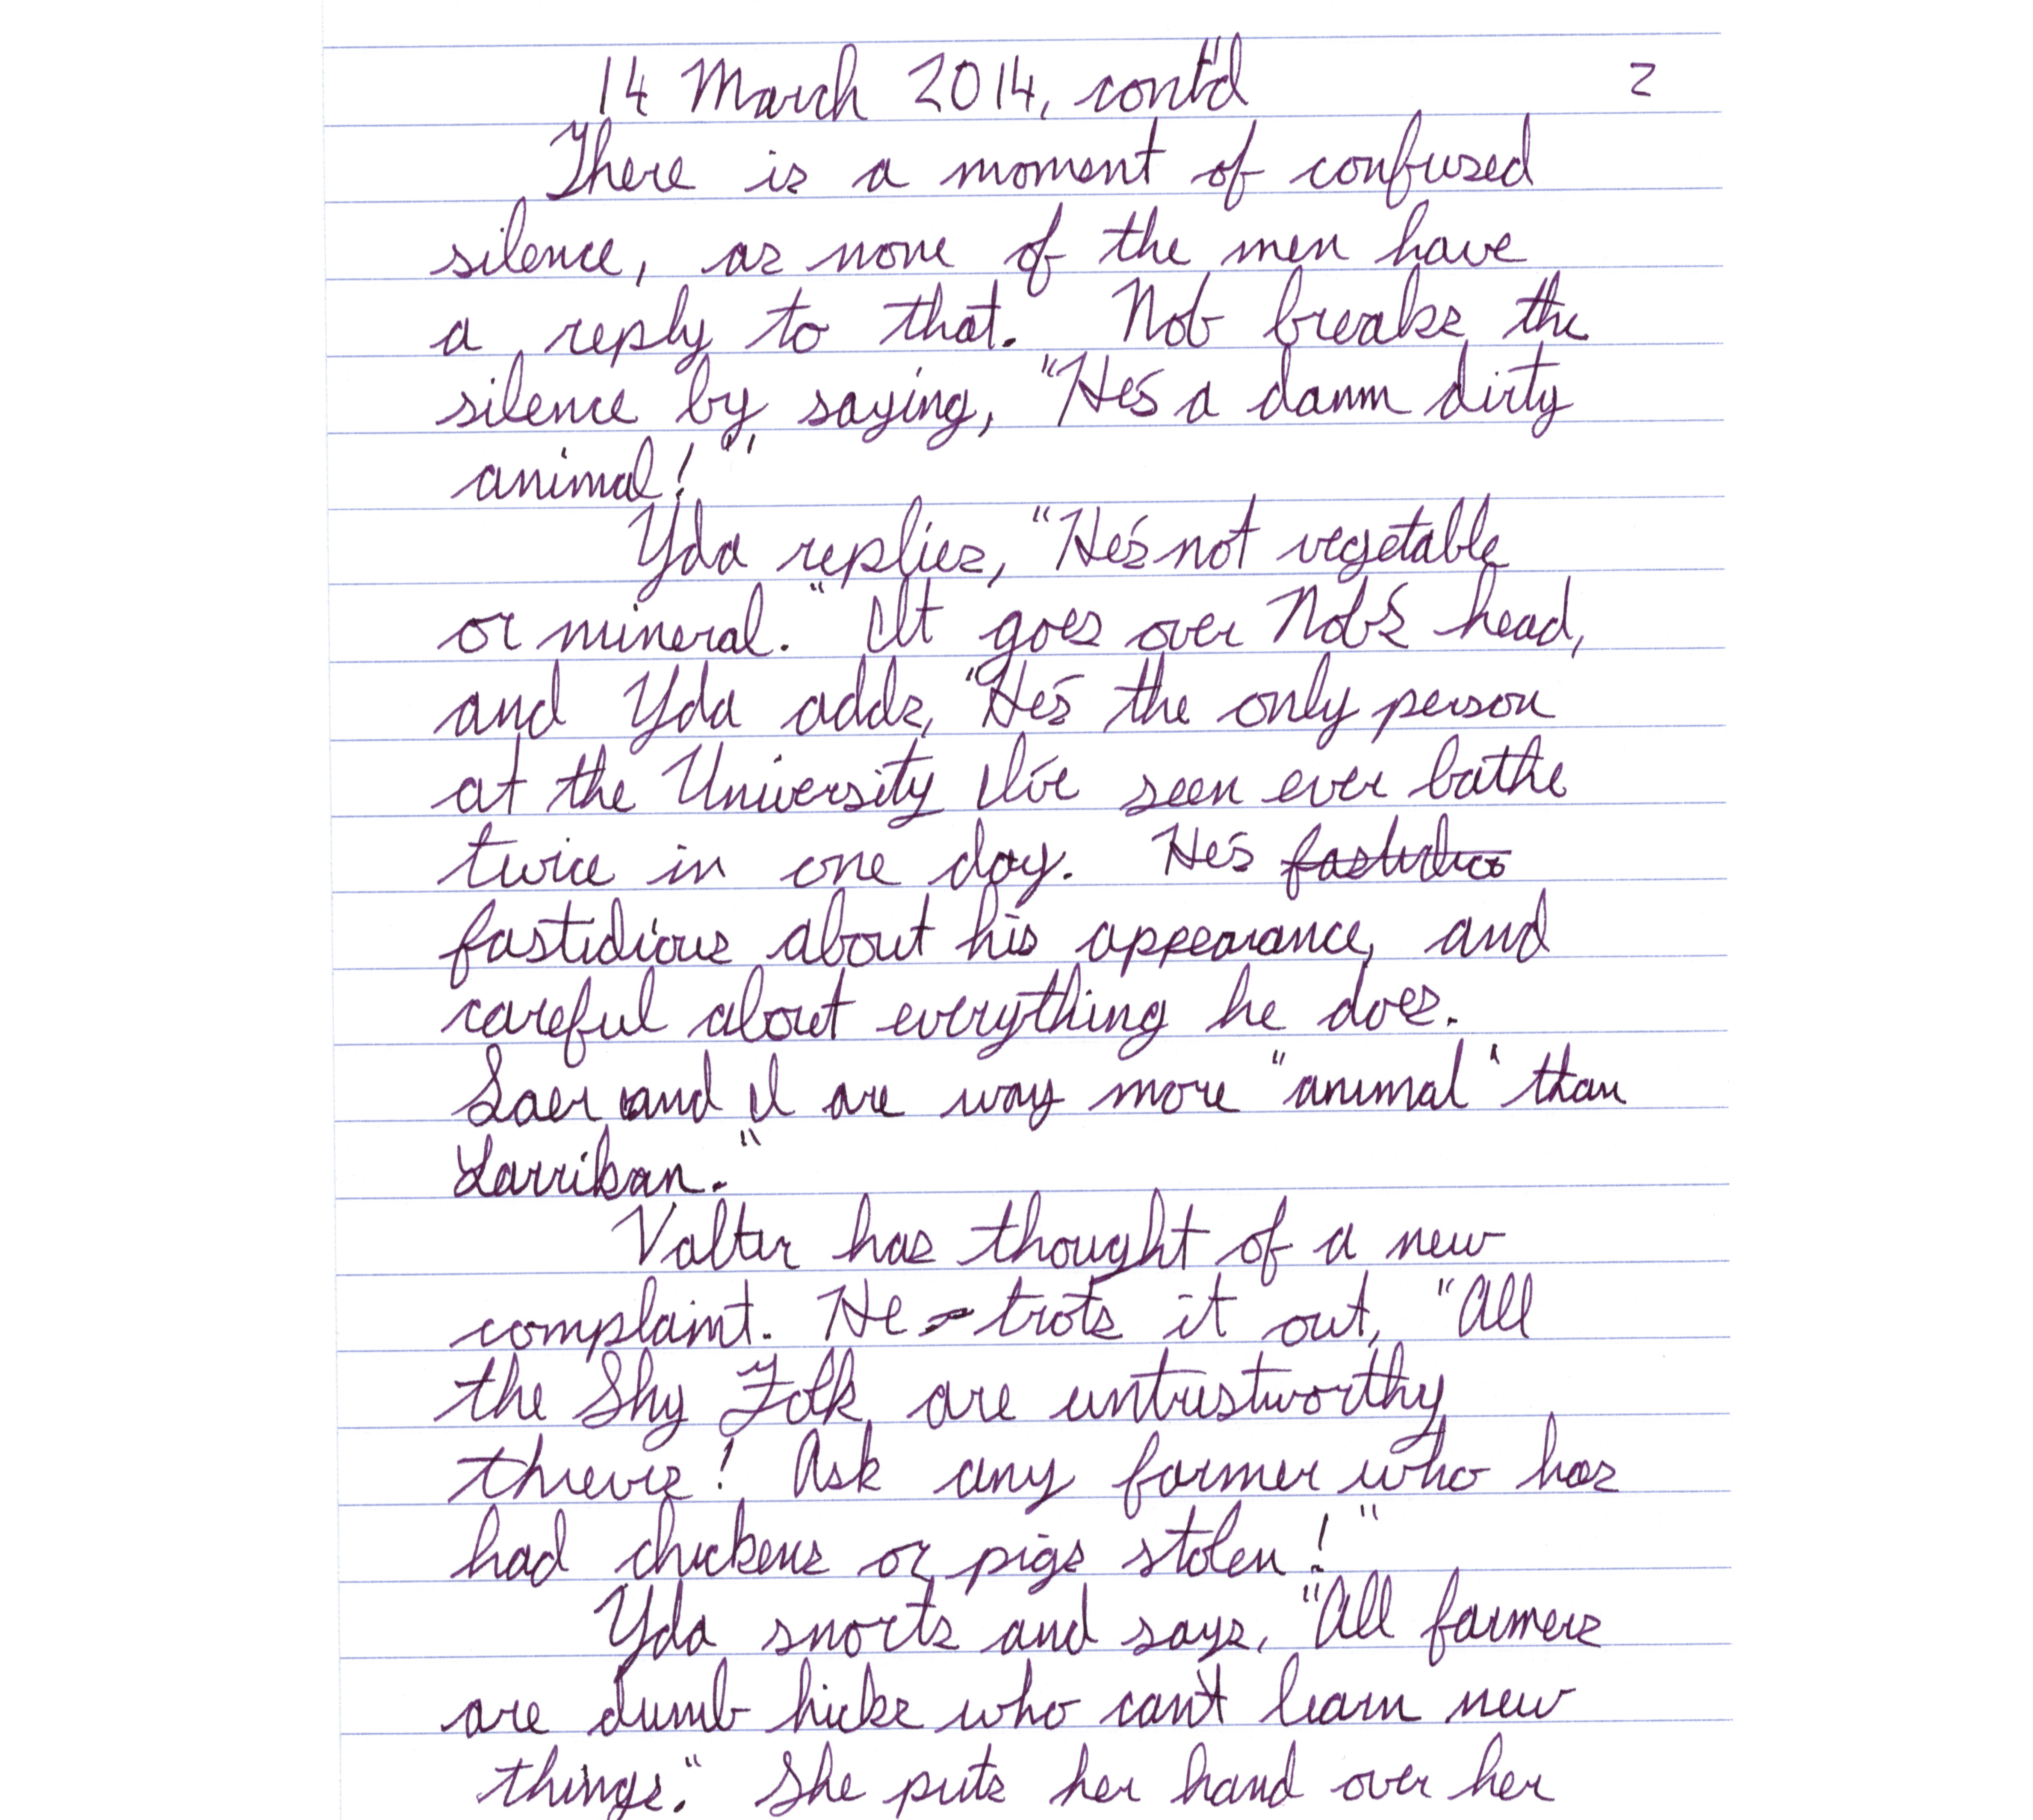 14 March 2014, cont'd 2
There is a moment of confused
silence, as none of the men have
a reply to that. Nob breaks the
silence by saying, "He's a damn dirty
animal!"
Yda replies, "He's not vegetable
or mineral." It goes over Nob's head,
and Yda adds, "He's the only person
at the University I've seen ever bathe
twice in one day. He's fastidios
fastidious about his appearance, and
careful about everything he does.
Saer and I are way more "animal" than
Larrikan."
Valter has thought of a new
complaint. He trots it out, "All
the Shy Folk are untrustworthy
thieves! Ask any farmer who has
had chickens or pigs stolen!"
Yda snorts and says, "All farmers
are dumb hicks who can't learn new
things." She puts her hand over her